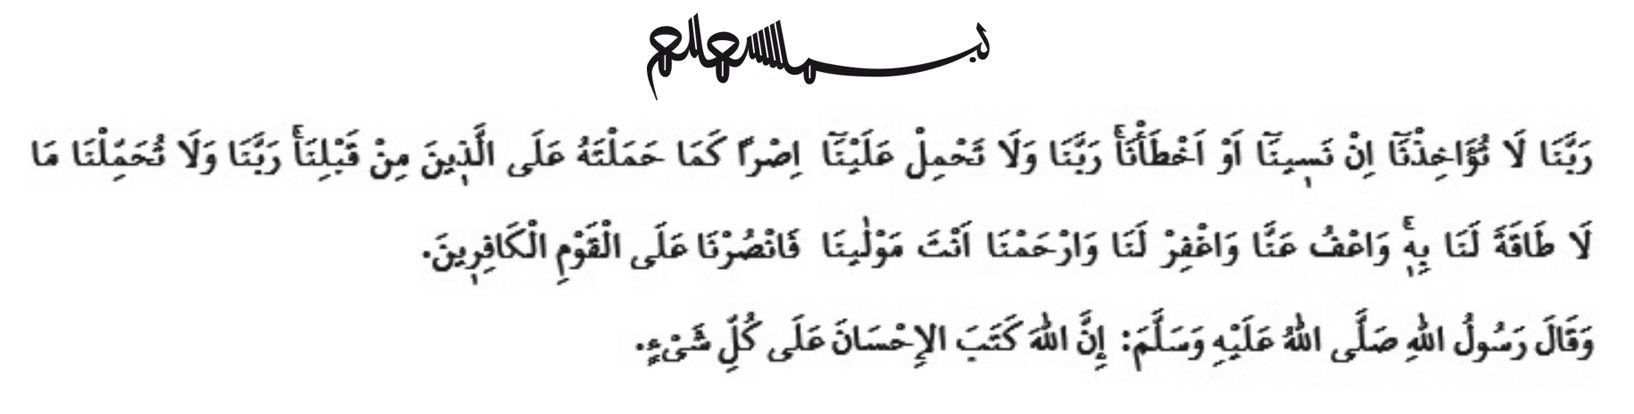 بسم الله الرحمن الرحيم
رَبَّنَا لَا تُؤَاخِذْنَٓا اِنْ نَسٖينَٓا اَوْ اَخْطَأْنَاۚ رَبَّنَا وَلَا تَحْمِلْ عَلَيْنَٓا اِصْرًا كَمَا حَمَلْتَهُ عَلَى الَّذٖينَ مِنْ قَبْلِنَاۚ رَبَّنَا وَلَا تُحَمِّلْنَا مَا
لَا طَاقَةَ لَنَا بِهٖۚ وَاعْفُ عَنَّا وَاغْفِرْ لَنَا وَارْحَمْنَا اَنْتَ مَوْلٰينَا فَانْصُرْنَا عَلَى الْقَوْمِ الْكَافِرٖينَ.
وَقَالَ رَسُولُ اللهِ صَلَّى اللهُ عَلَيْهِ وَسَلَّمَ: إِنَّ اللهَ كَتَبَ الإِحْسَانَ عَلَى كُلِّ شَىْءٍ.